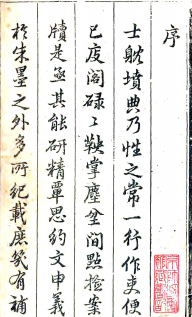 序
士躭墳典乃性之常一行作吏便
已庋閣碌〻鞅掌塵坌間點撿案
牘是亟其能研精覃思約文申義
扵朱墨之外多所紀載庶幾有補